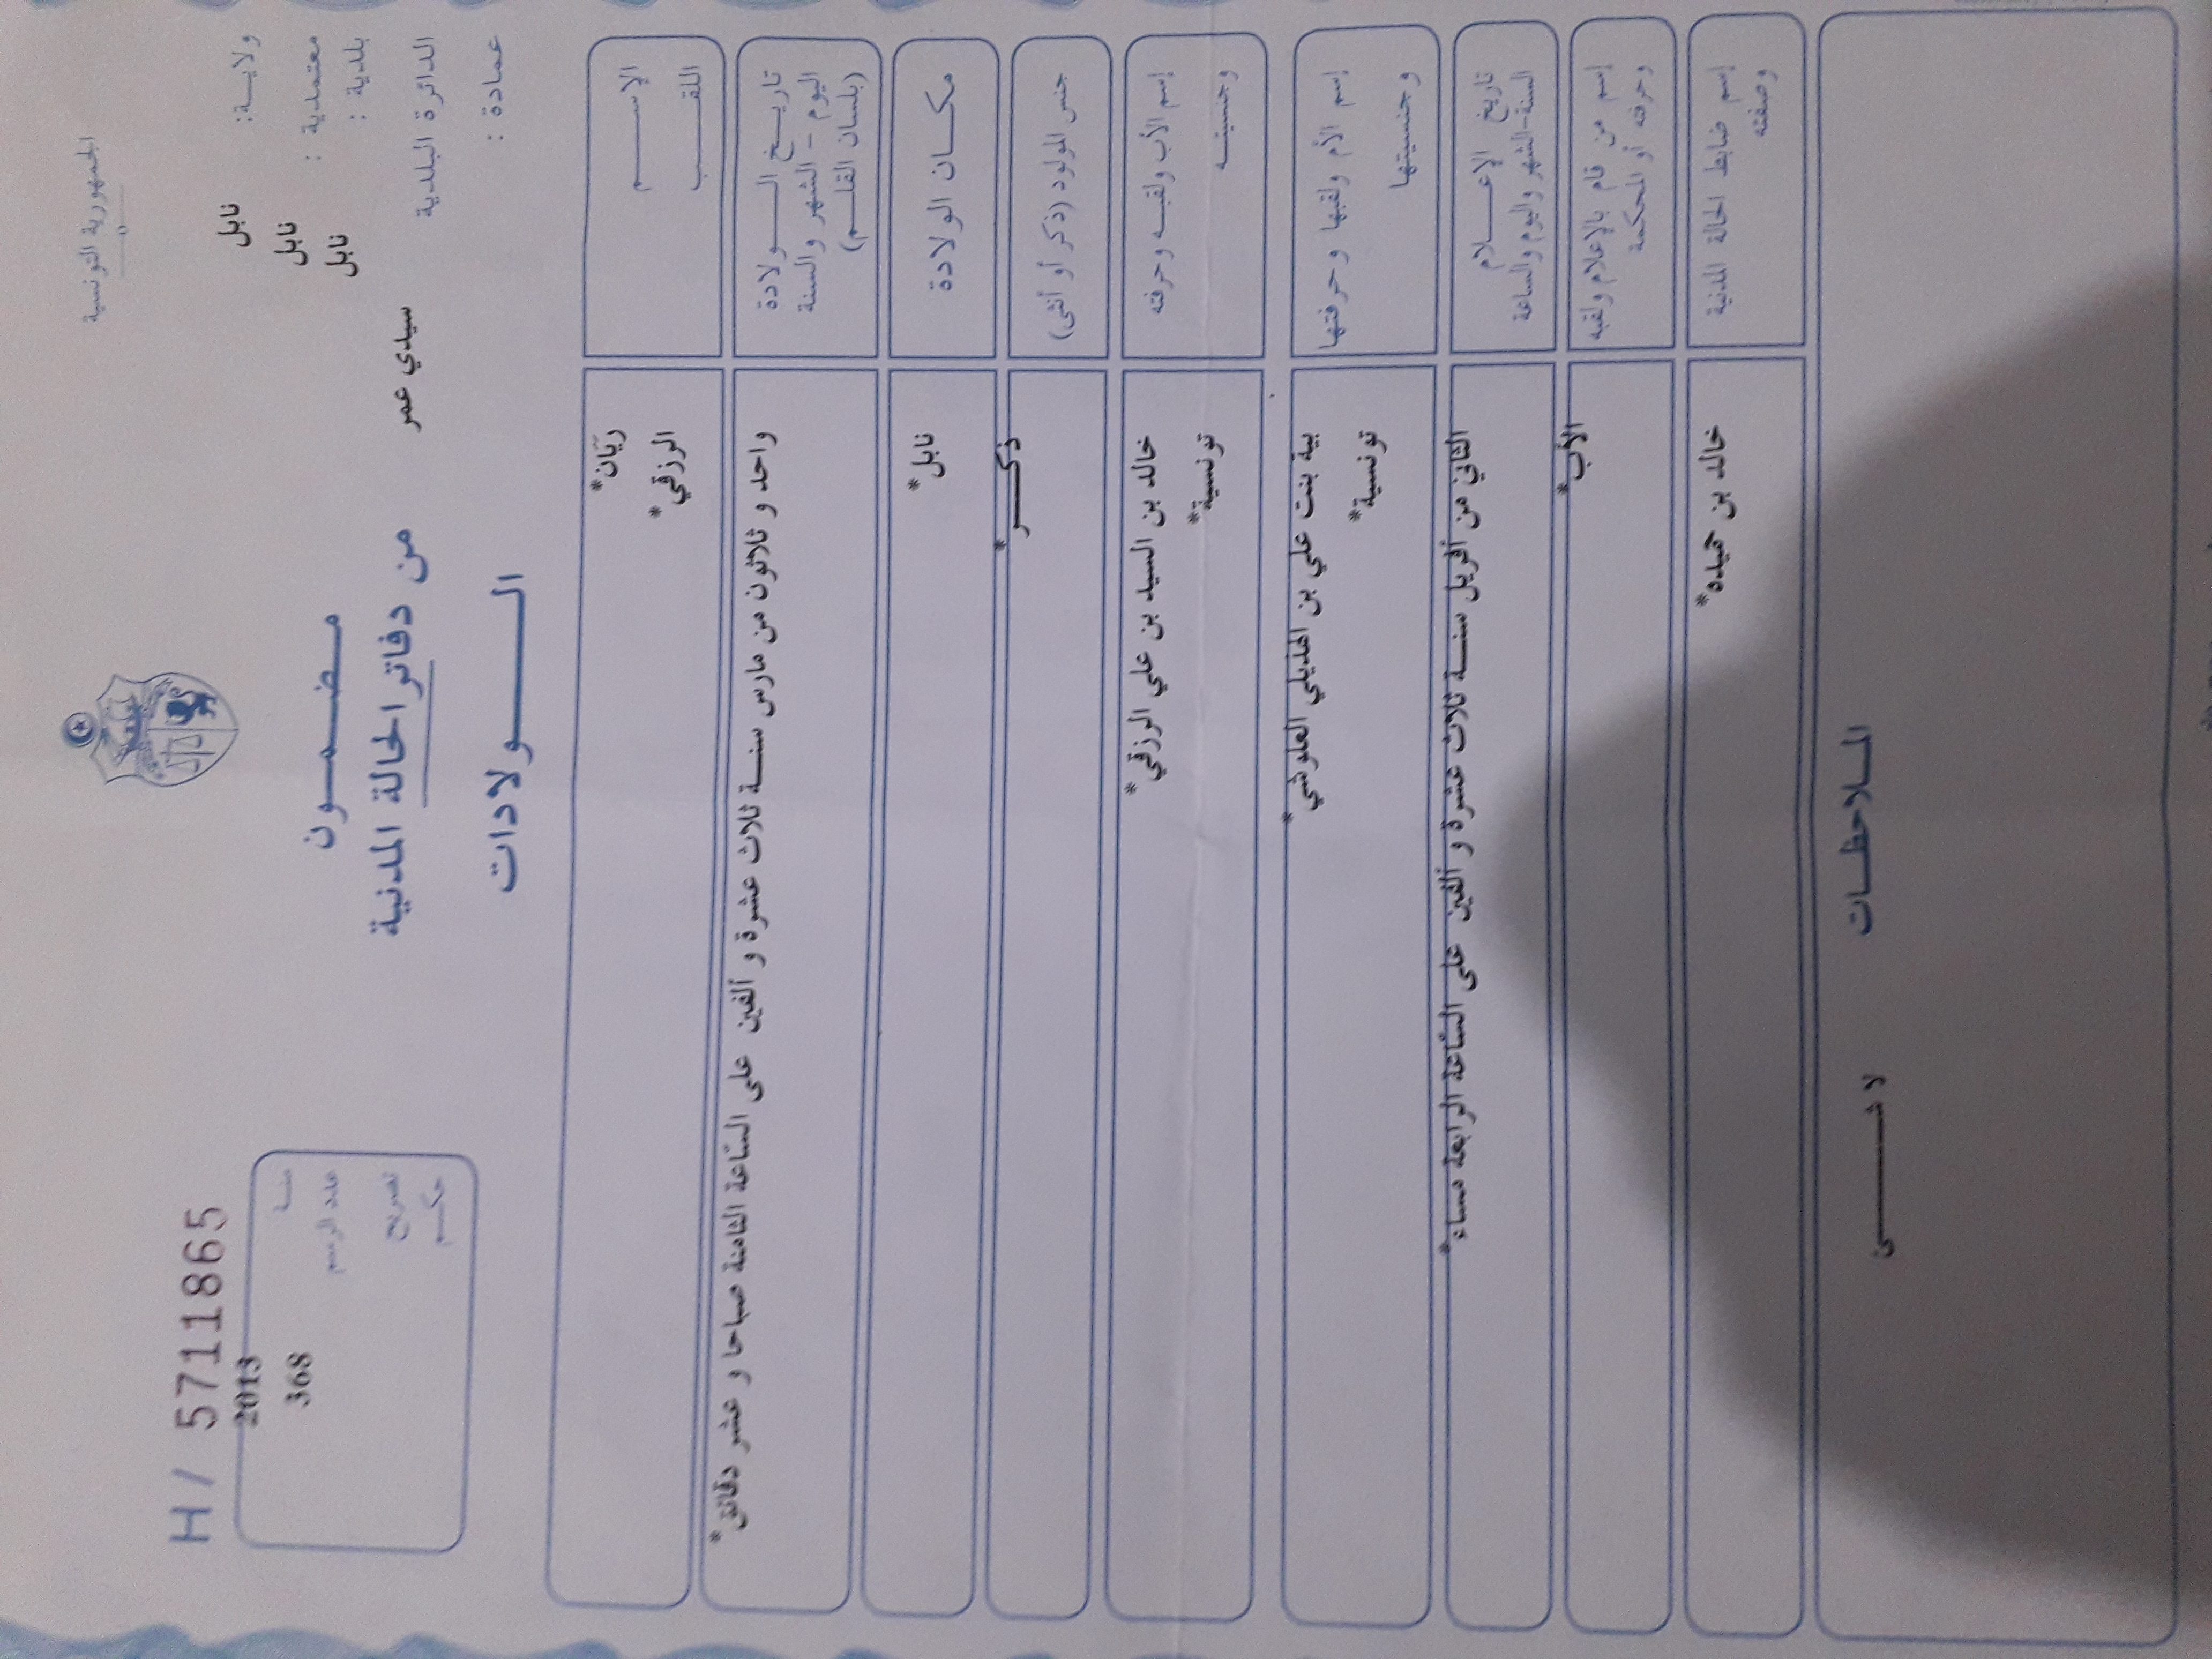 الجمهورية التونسية
ولايـــة: نابل
معتمدية : نابل
بلدية : نابل
الدائرة البلدية سيدي عمر
عمادة :
مـــضـــمـــون
من دفاتر الحالة المدنية
الــــــولادات
H/ 5711865
سنــة 2013
عدد الرســم 368
تصريح
حكــم
الإســــــم ريّان*
اللقــــب الرزقي*
تاريــخ الــــولادة
اليوم - الشهر والسنة
(بلسان القلــم)
واحد و ثلاثون من مارس سنـــة ثلاث عشرة و ألفين على السّاعة الثامنة صباحا و عشر دقائق*
مكـــان الولادة نابل*
جنس المولود (ذكر أو أنثى) ذكـــر*
إسم الأب ولقبــه وحرفته خالد بن السيد بن علي الرزقي*
وجنسيتــه تونسية*
إسم الأم ولقبها وحرفتها بية بنت علي بن الهذيلي العلوشي*
وجنسيتها تونسية*
تاريخ الإعـــلام
السنة-الشهر واليوم والساعة
الثاني من أفريل سنـــة ثلاث عشرة و ألفين على السّاعة الرابعة مساء*
إسم من قام بالإعلام ولقبه
وحرفته أو المحكمة
الأب*
إسم ضابط الحالة المدنية
وصفته
خالد بن حميده*
المـلاحظــات
لا شـــــئ